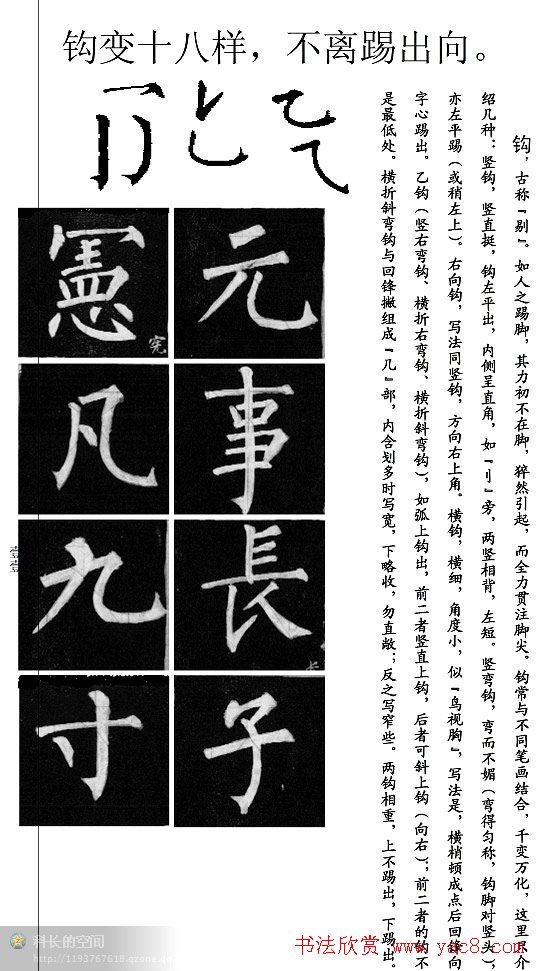 钩变十八样，不离踢出向。
钩，古称『剔』。如人之踢脚，其力初不在脚，猝然引起，而全力贯注脚尖。钩常与不同笔画结合，千变万化，这里介
绍几种：竖钩，竖直挺，钩左平出，内侧呈直角，如『刂』旁，两竖相背，左短。竖弯钩，弯而不媚（弯得匀称，钩脚对竖头），
亦左平踢（或稍左上）。右向钩，写法同竖钩，方向右上角。横钩，横细，角度小，似『鸟视胸』，写法是，横梢顿成点后回锋向
字心踢出。乙钩（竖右弯钩、横折右弯钩、横折斜弯钩），如弧上钩出，前二者竖直上钩，后者可斜上钩（向右）；前二者的钩不
是最低处。横折斜弯钩与回锋撇组成『几』部，内含划多时写宽，下略收，勿直敞；反之写窄些。两钩相重，上不踢出，下踢出。
元
事
長
长
子
憲
宪
凡
九
寸
壹壹
科长的空间
http://1193767618.qzone.qq
书法欣赏 www.yac8.com